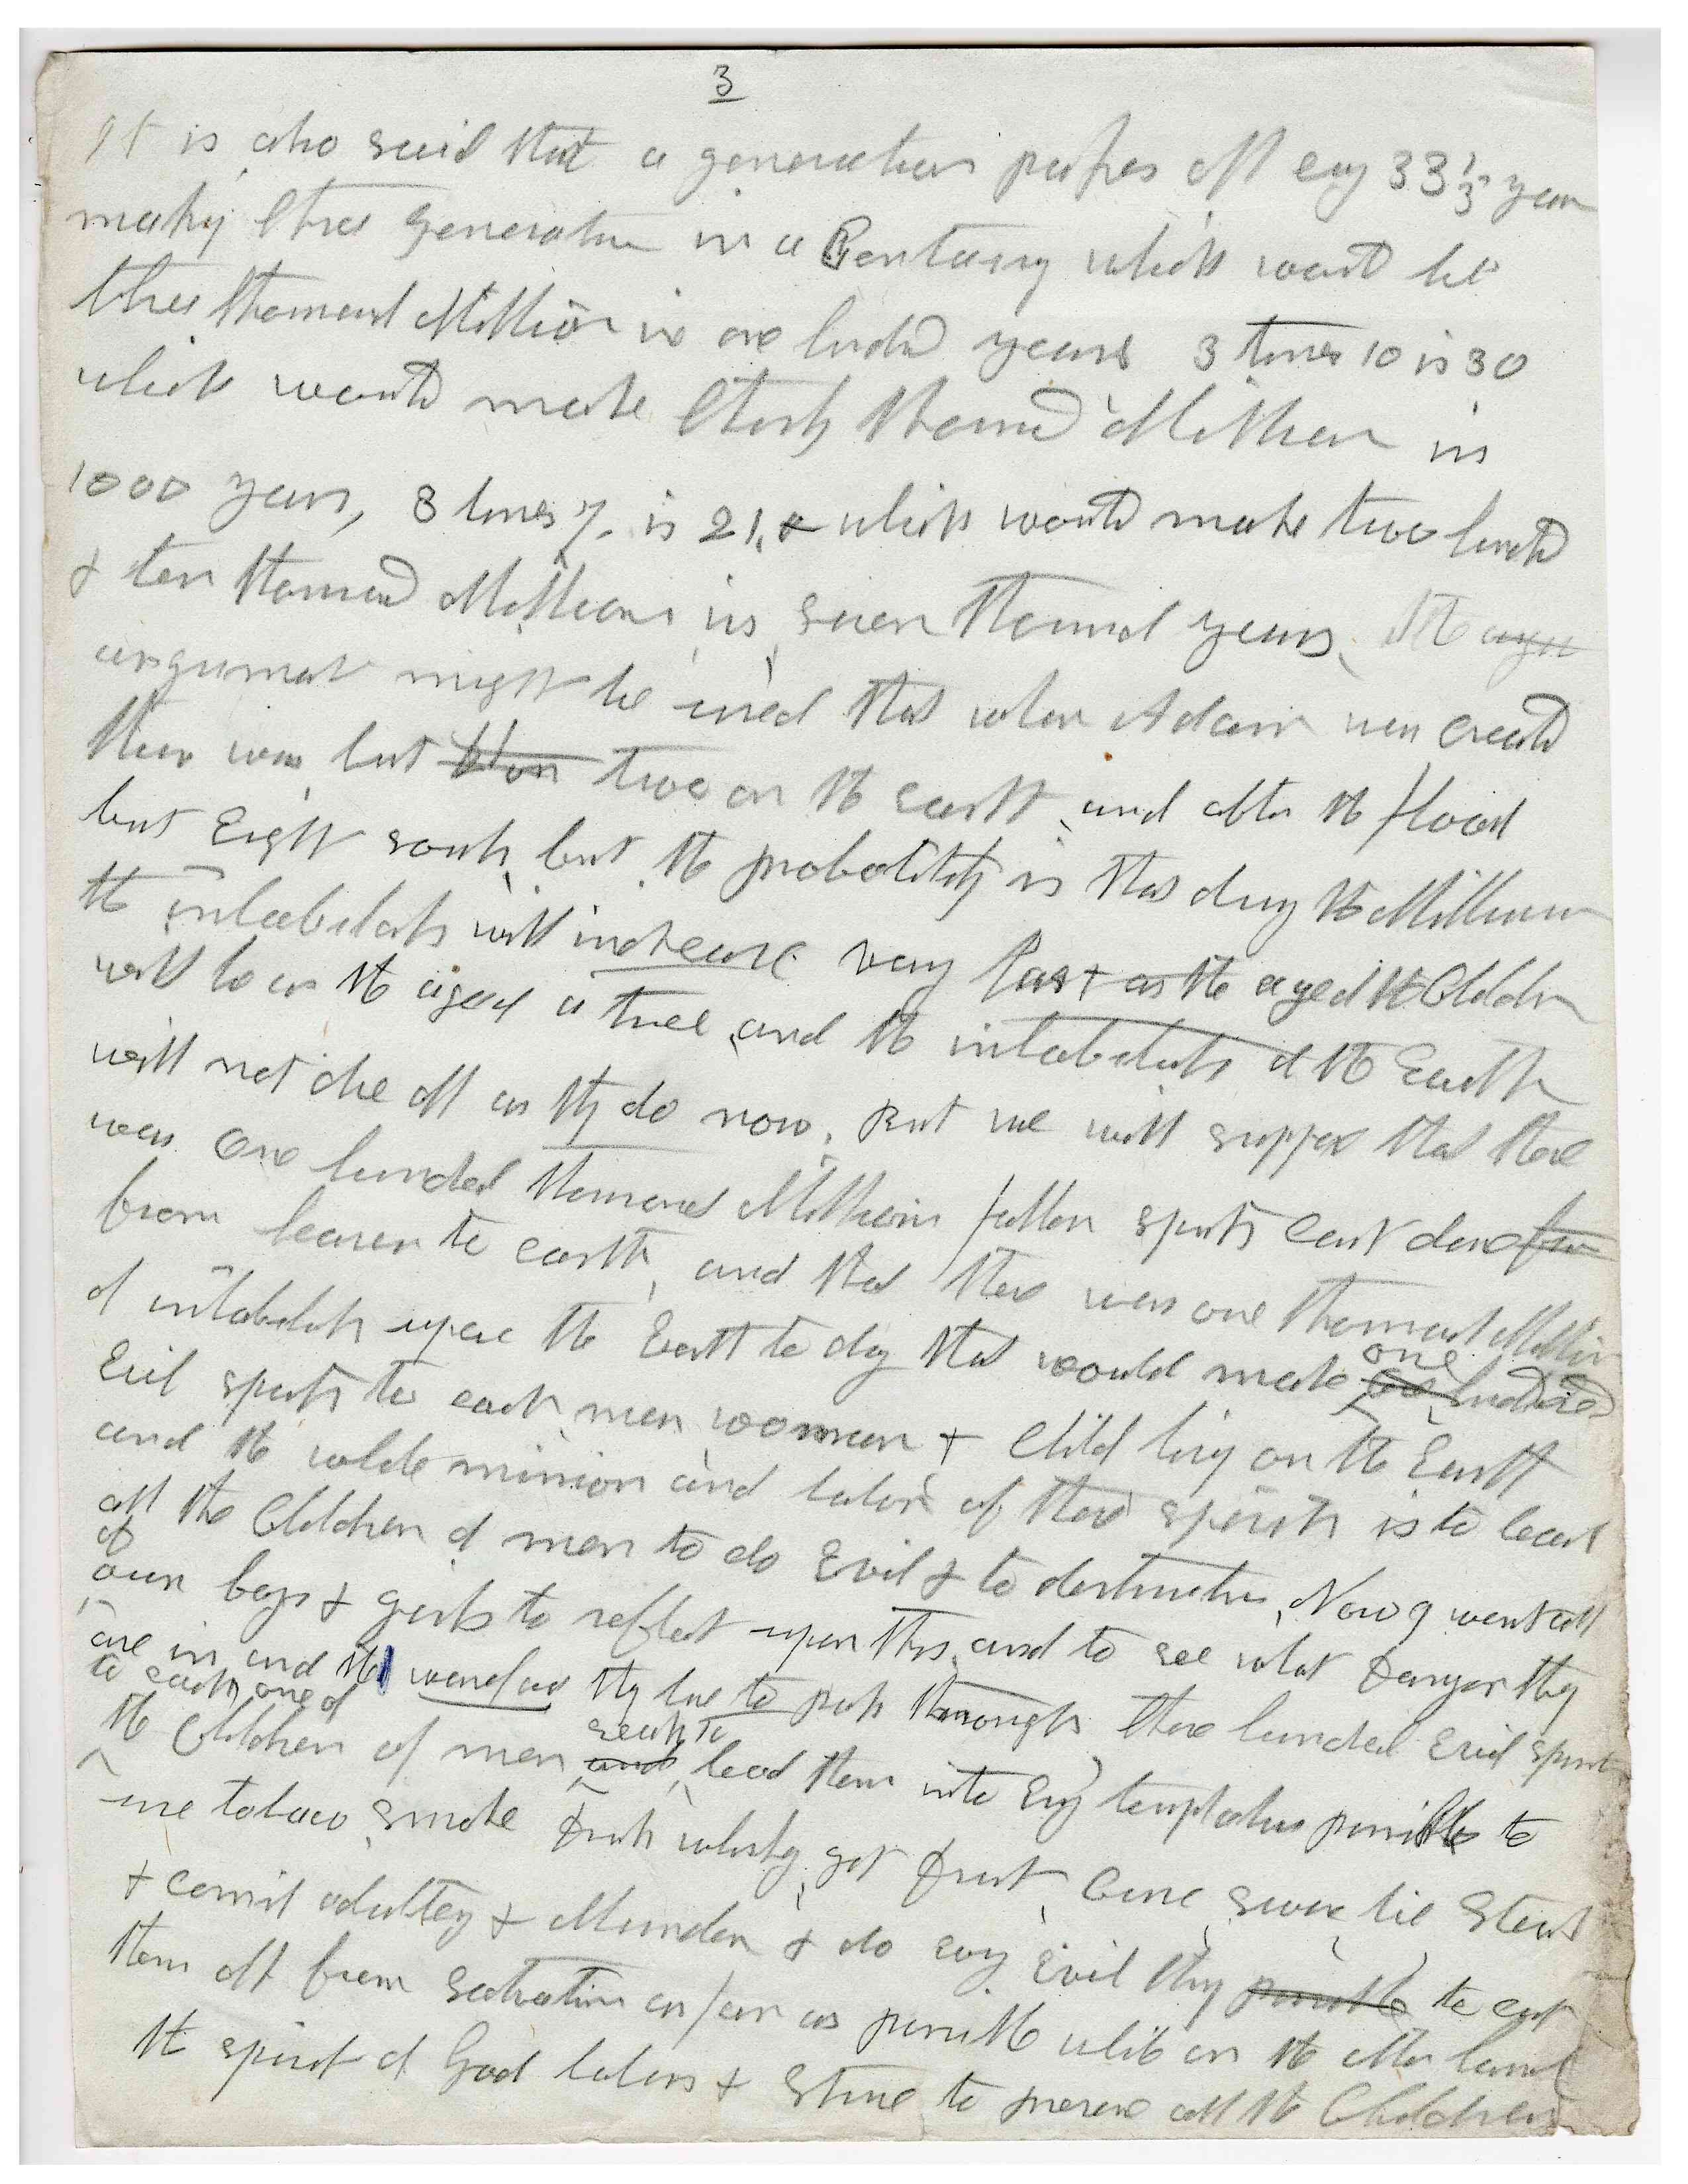 3
It is also said that a generation passes off evry 33 1/3 years
making three generation in a Century which would be
three thousand Million in one hundrd years 3 times 10 is 30
which would make thirty thousand Million in
1000 years, 3 times 7. is 21, & which would make two hundrd
& ten thousand Millions in seven thousand years. The argu
argument might be used that when Adam was Creatd
there was but two on the earth, and after the flood
but Eight souls, but the probability is that during the Millium
the inhabitants will increase very fast as the aged the Children
will be as the aged a tree, and the inhabitants of the Earth
will not die off as they do now. But we will suppose that there
was one hundred thousand Millions fallen spirits cast down from
from heaven to earth, and that there was one thousand Million
of inhabitants upon the Earth to day that would make one hundred
Evil spirits to each man woman & Child living on the Earth
and the whole mission and labor of these spirits is to lead
all the Children of men to do Evil & to destruction, Now I want all
of
our boys & girls to reflect upon this, and to see what danger they
are in and the warfare they have to pass through these hundred Evil spirits
to each one of
the Children of men and seek to lead them into Evry temptation possible to
use tobaco, smoke drink whisky get drunk, Curse, swear lie Steal
& comit adultery & Murder & do evry Evil they possible to cut
them off from salvation as far as possible while on the other hand
the spirit of God labors & Strive to preserve all the Children